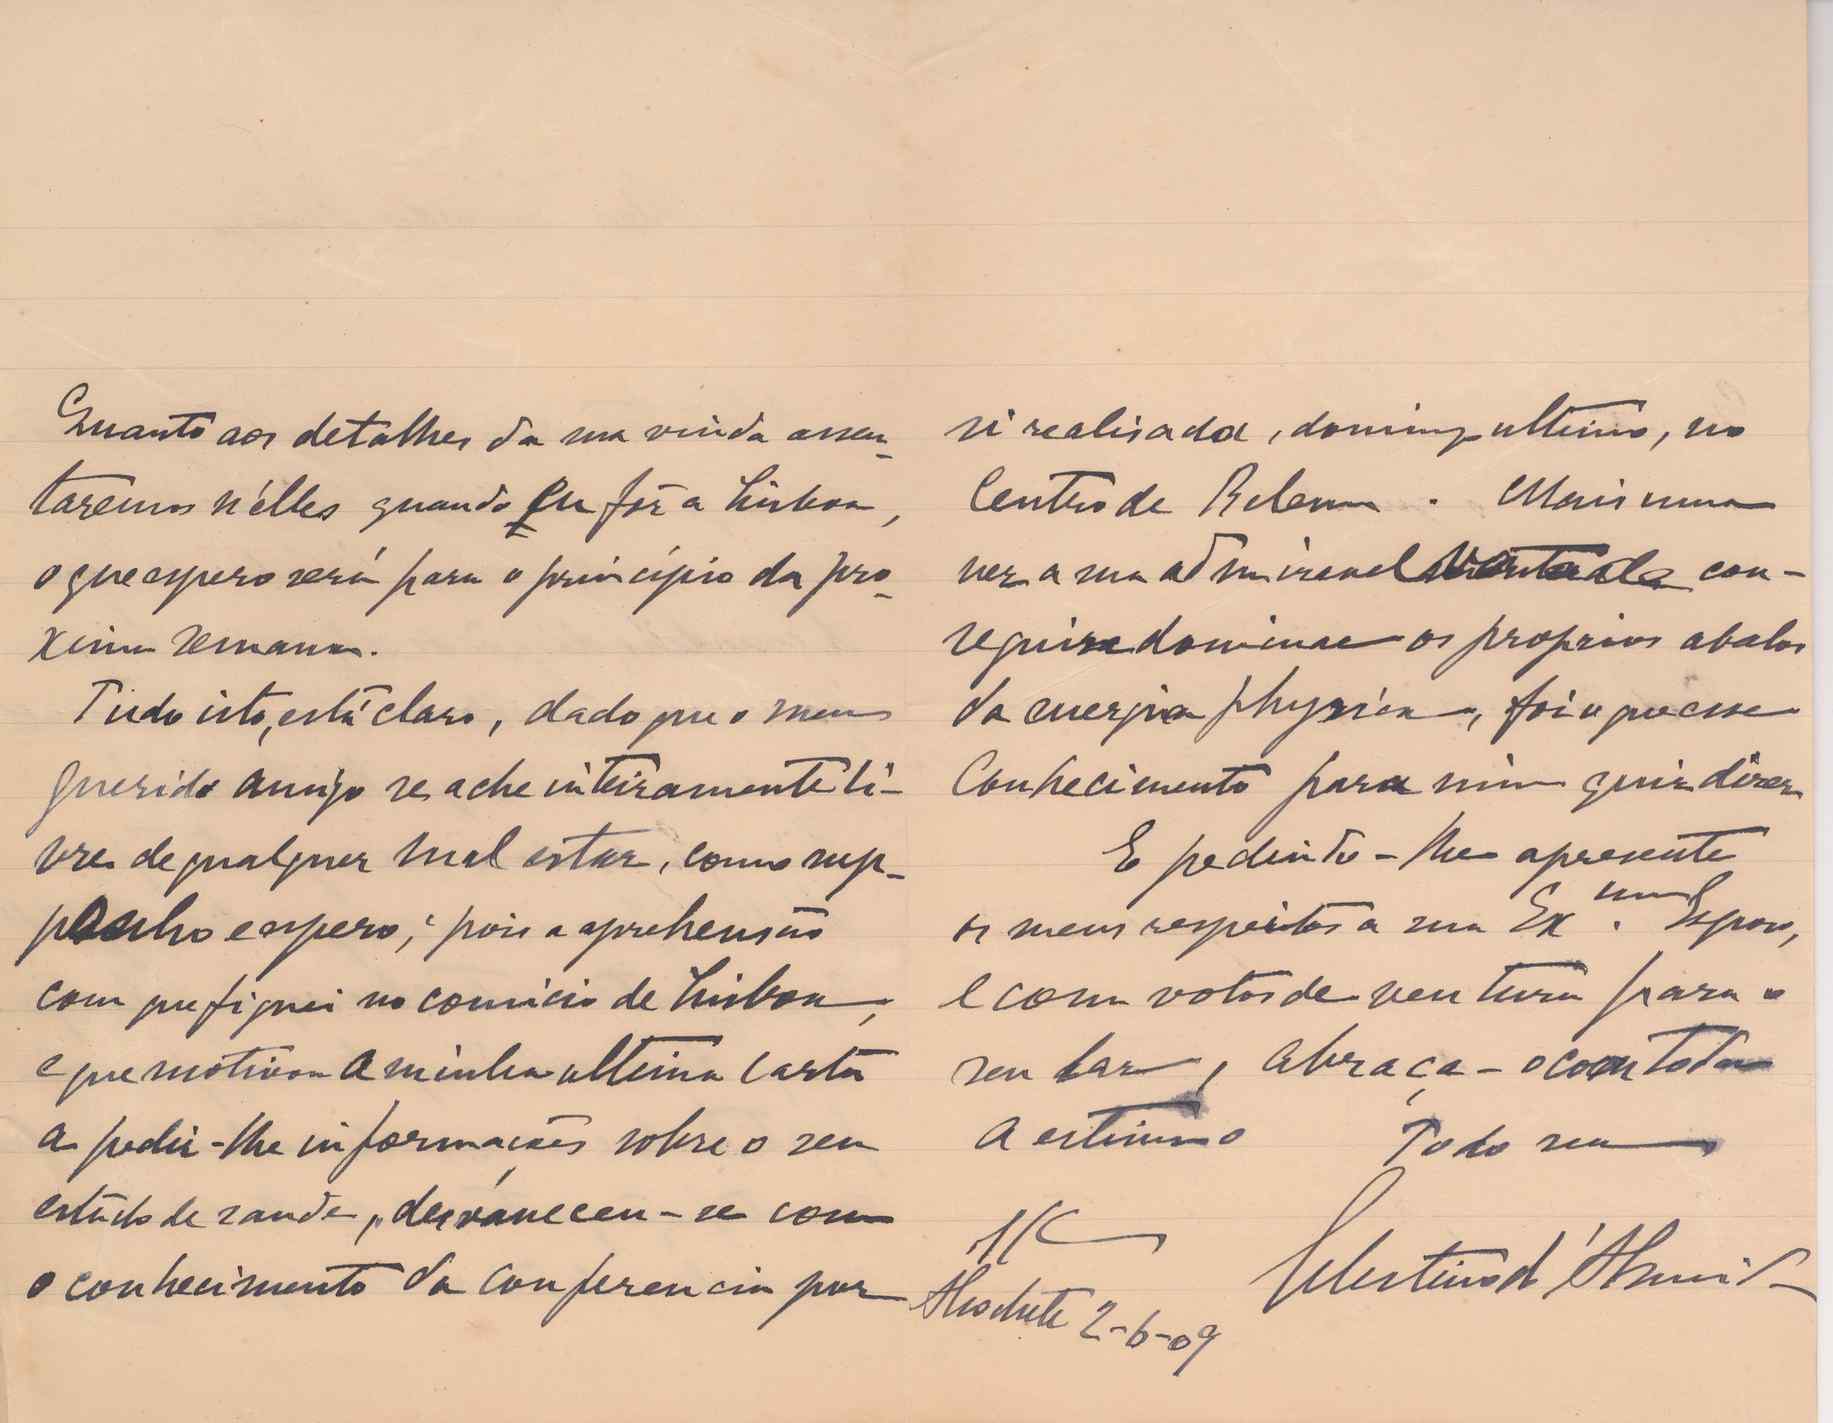 Quanto aos detalhes da sua vinda assen-
taremos n'elles quando eu fôr a Lisboa,
o que espero será para o principio da pro-
xima semana.
Tudo isto, está claro, dado que o meu
querido amigo se ache inteiramente li-
vre de qualquer mal estar, como sup-
ponho e espero, pois a aprehensão
com que fiquei no comicio de Lisboa,
e que motivou a minha ultima carta
a pedir-lhe informações sobre o seu
estado de saude, desvaneceu-se com
o conhecimento da conferencia por
si realisada, domingo ultimo, no
Centro de Belem. Mais uma
vez a sua admiravel vontade con-
seguira dominar os proprios abalos
da energia physica, foi o que esse
conhecimento para mim quiz dizer
E pedindo-lhe apresente
os meus respeitos a sua Ex.ma Esposa,
e com votos de ventura para o
seu lar, abraça-o com toda
a estima o Todo seu
Alcochete 2-6-09
Celestino d'Almeida